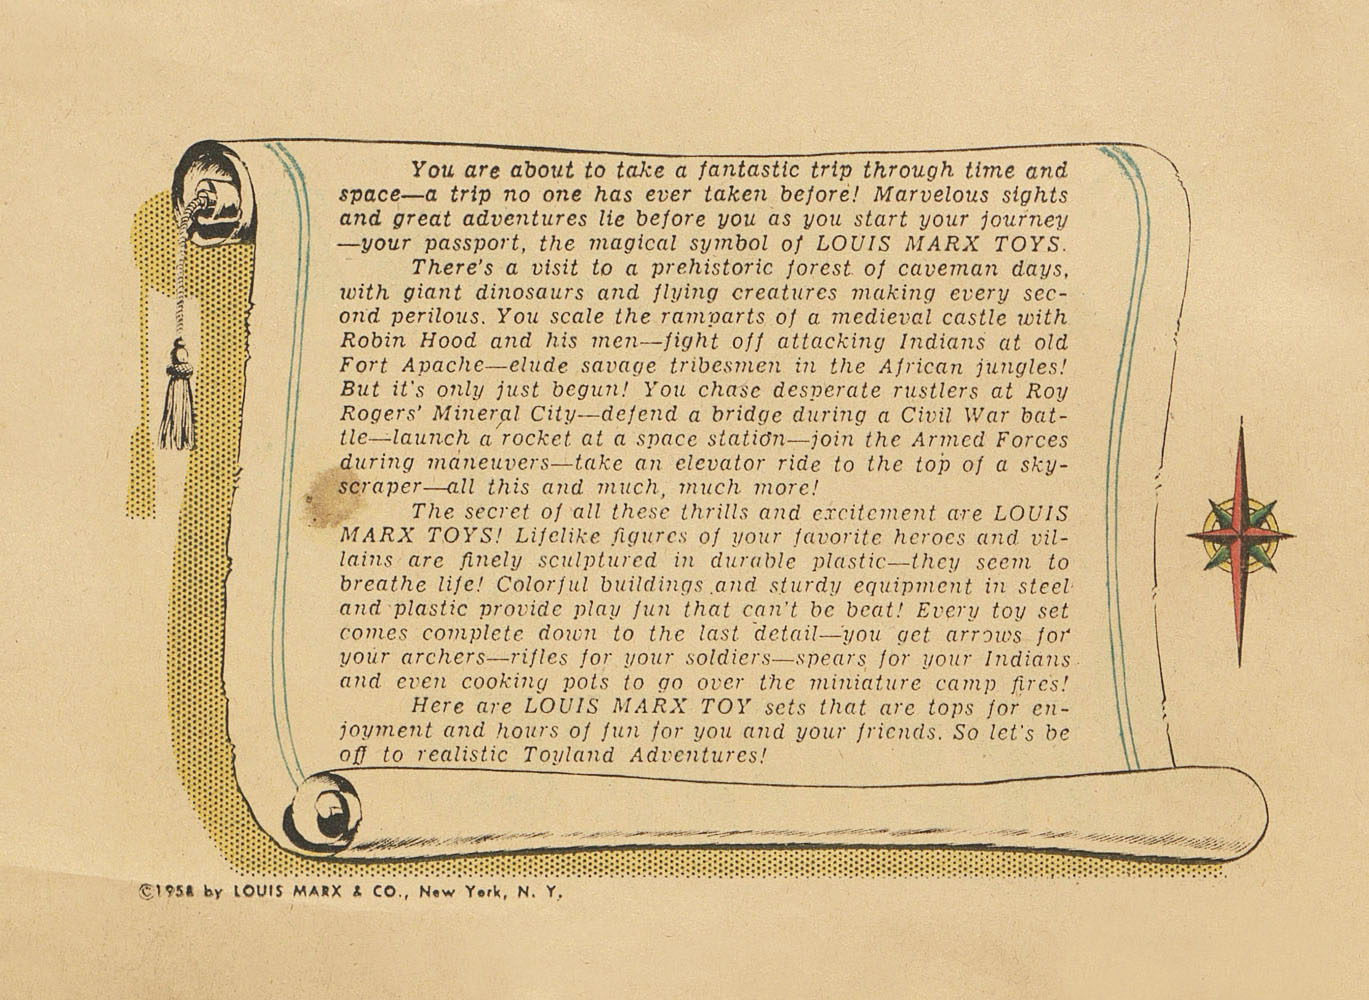 You are about to take a fantastic trip through time and
space—a trip no one has ever taken before! Marvelous sights
and great adventures lie before you as you start your journey
—your passport, the magical symbol of LOUIS MARX TOYS.
There's a visit to a prehistoric forest of caveman days,
with giant dinosaurs and flying creatures making every sec-
ond perilous. You scale the ramparts of a medieval castle with
Robin Hood and his men—fight off attacking Indians at old
Fort Apache—elude savage tribesmen in the African jungles!
But it's only just begun! You chase desperate rustlers at Roy
Rogers' Mineral City—defend a bridge during a Civil War bat-
tle—launch a rocket at a space station—join the Armed Forces
during maneuvers—take an elevator ride to the top of a sky-
scraper—all this and much, much more!
The secret of all these thrills and excitement are LOUIS
MARX TOYS! Lifelike figures of your favorite heroes and vil-
lains are finely sculptured in durable plastic—they seem to
breathe life! Colorful buildings and sturdy equipment in steel
and plastic provide play fun that can't be beat! Every toy set
comes complete down to the last detail—you get arrows for
your archers—rifles for your soldiers—spears for your Indians
and even cooking pots to go over the miniature camp fires!
Here are LOUIS MARX TOY sets that are tops for en-
joyment and hours of fun for you and your friends. So let's be
off to realistic Toyland Adventures!
©1958 by LOUIS MARX & CO., New York, N. Y.